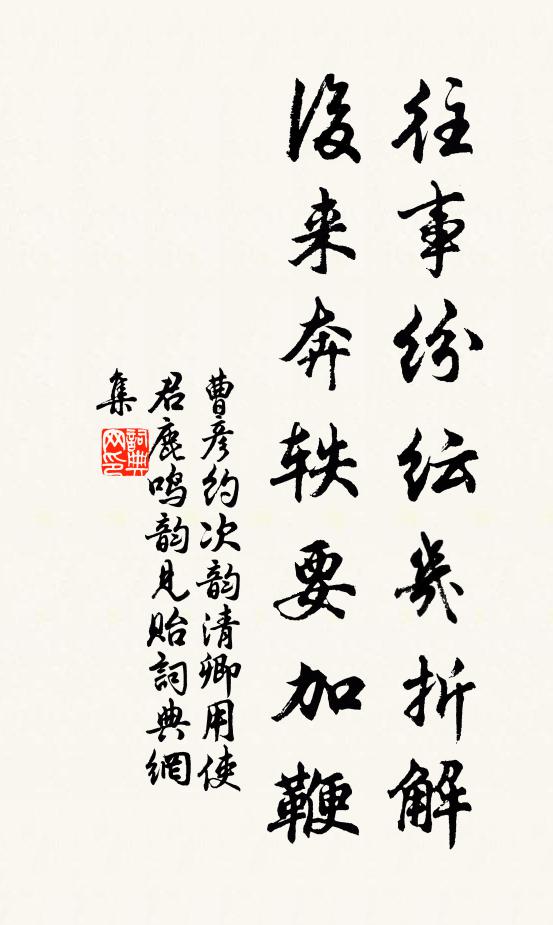 往事纷纭几折解
後来奔轶要加鞭
曹彦约次韵清卿用使
君鹿鸣韵见贻詞典網
集
詞典网印